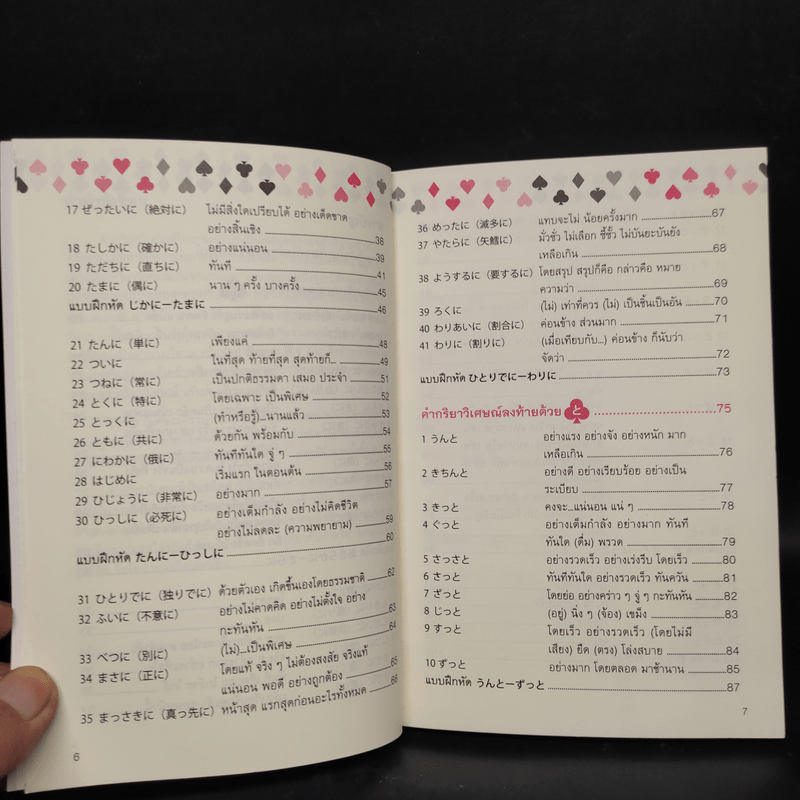 17 ぜったいに (絶対に) ไม่มีสิ่งใดเปรียบได้ อย่างเด็ดขาด
อย่างสิ้นเชิง 38
18 たしかに (確かに) อย่างแน่นอน 39
19 ただちに (直ちに) ทันที 41
20 たまに (偶に) นาน ๆ ครั้ง บางครั้ง 45
แบบฝึกหัด じかにーたまに 46
21 たんに (単に) เพียงแค่ 48
22 ついに ในที่สุด ท้ายที่สุด สุดท้ายก็... 49
23 つねに (常に) เป็นปกติธรรมดา เสมอ ประจำ 51
24 とくに (特に) โดยเฉพาะ เป็นพิเศษ 52
25 とっくに (ทำหรือรู้)...นานแล้ว 53
26 ともに (共に) ด้วยกัน พร้อมกับ 54
27 にわかに (俄に) ทันทีทันใด จู่ ๆ 55
28 はじめに เริ่มแรก ในตอนต้น 56
29 ひじょうに (非常に) อย่างมาก 57
30 ひっしに (必死に) อย่างเต็มกำลัง อย่างไม่คิดชีวิต
อย่างไม่ลดละ (ความพยายาม) 59
แบบฝึกหัด たんにーひっしに 60
31 ひとりでに (独りでに) ด้วยตัวเอง เกิดขึ้นเองโดยธรรมชาติ 62
32 ふいに (不意に) อย่างไม่คาดคิด อย่างไม่ตั้งใจ อย่าง
กะทันหัน 63
33 べつに (別に) (ไม่)...เป็นพิเศษ 64
34 まさに (正に) โดยแท้ จริง ๆ ไม่ต้องสงสัย จริงแท้
แน่นอน พอดี อย่างถูกต้อง 65
35 まっさきに (真っ先に) หน้าสุด แรกสุดก่อนอะไรทั้งหมด 66
6
36 めったに (滅多に) แทบจะไม่ น้อยครั้งมาก 67
37 やたらに (矢鱈に) มั่วซั่ว ไม่เลือก ซี้ซั้ว ไม่บันยะบันยัง
เหลือเกิน 68
38 ようするに (要するに) โดยสรุป สรุปก็คือ กล่าวคือ หมาย
ความว่า 69
39 ろくに (ไม่) เท่าที่ควร (ไม่) เป็นชิ้นเป็นอัน 70
40 わりあいに (割合に) ค่อนข้าง ส่วนมาก 71
41 わりに (割りに) (เมื่อเทียบกับ...) ค่อนข้าง ก็นับว่า
จัดว่า 72
แบบฝึกหัด ひとりでにーわりに 73
คำกริยาวิเศษณ์ลงท้ายด้วย と 75
1 うんと อย่างแรง อย่างจัง อย่างหนัก มาก
เหลือเกิน 76
2 きちんと อย่างดี อย่างเรียบร้อย อย่างเป็น
ระเบียบ 77
3 きっと คงจะ...แน่นอน แน่ ๆ 78
4 ぐっと อย่างเต็มกำลัง อย่างมาก ทันที
ทันใด (ดื่ม) พรวด 79
5 さっさと อย่างรวดเร็ว อย่างเร่งรีบ โดยเร็ว 80
6 さっと ทันทีทันใด อย่างรวดเร็ว ทันควัน 81
7 ざっと โดยย่อ อย่างคร่าว ๆ จู่ ๆ กะทันหัน 82
8 じっと (อยู่) นิ่ง ๆ (จ้อง) เขม็ง 83
9 すっと โดยเร็ว อย่างรวดเร็ว (โดยไม่มี
เสียง) ยืด (ตรง) โล่งสบาย 84
10 ずっと อย่างมาก โดยตลอด มาช้านาน 85
แบบฝึกหัด うんとーずっと 87
7